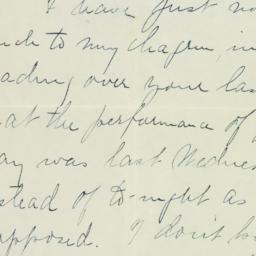 I have just no
uch to my chagrin, in
ading over your las
at the performance of y
ay was last Wednes
stead of to-night as
upposed. I don't k